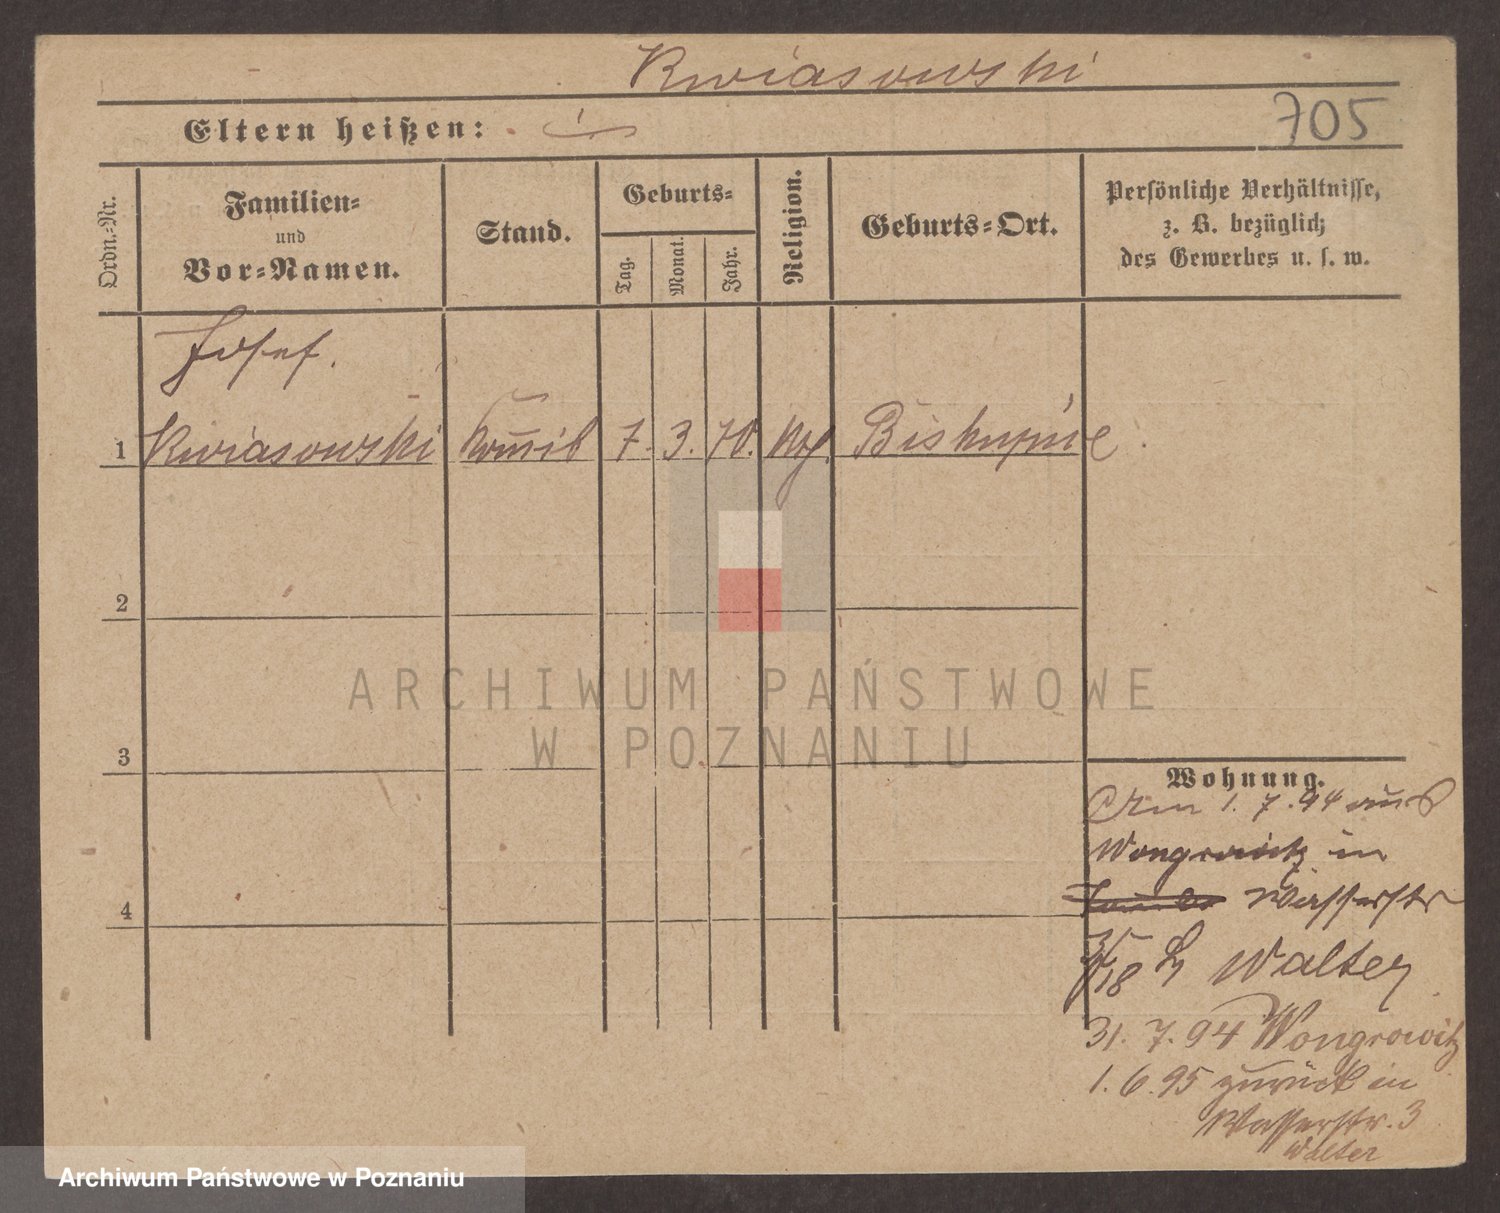 Kwiasowski
Eltern heißen:
705
Ordn.-Nr.
Familien-
und
Vor-Namen.
Stand.
Geburts-
Tag.
Monat.
Jahr.
Religion.
Geburts-Ort.
Persönliche Verhältnisse,
z. B. bezüglich
des Gewerbes u. s. w.
Josef.
1 Kwiasowski 7. 3. 70. Biskupice
2
3
4
Wohnung.
Am 1. 7. 94 aus
Wongrowitz in
Wasserstr
Walter
31. 7. 94 Wongrowitz
1. 6. 95 zurück in
Wasserstr. 3
Walter
ARCHIWUM PAŃSTWOWE
W POZNANIU
Archiwum Państwowe w Poznaniu